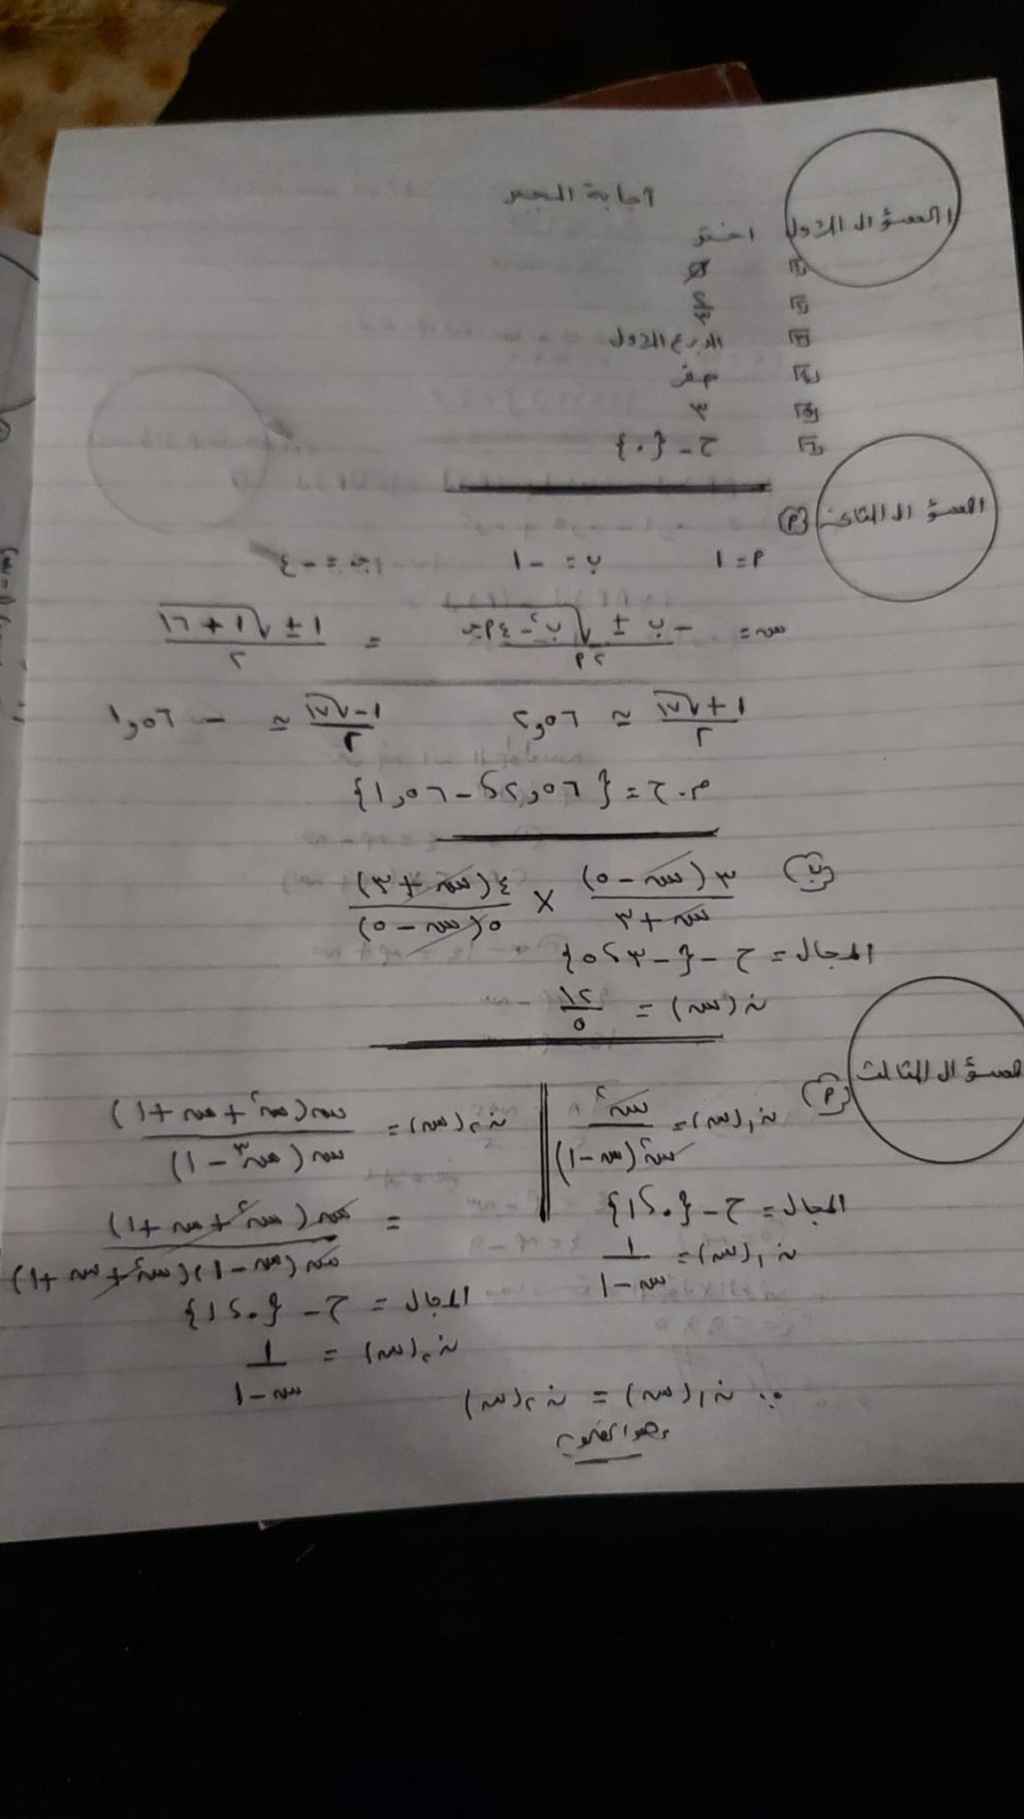 اجابة الجبر
السؤال الأول اختر
١
٢
٣ الربع الأول
٤ صفر
٥ ٣
٦ ح - {٠}
السؤال الثاني (أ)
أ = ١ ب = -١ جـ = -٤
س = (-ب ± √(ب² - ٤أجـ)) / ٢أ = (١ ± √(١ + ١٦)) / ٢
(١ + √١٧) / ٢ ≈ ٢,٥٦ (١ - √١٧) / ٢ ≈ -١,٥٦
م.ح = {٢,٥٦ ، -١,٥٦}
(ب) ٣(س - ٥) / (س + ٣) × ٤(س + ٣) / ٥(س - ٥)
المجال = ح - {-٣ ، ٥}
ن(س) = ١٢ / ٥
السؤال الثالث (أ)
ن₁(س) = س² / س²(س - ١)
المجال = ح - {٠ ، ١}
ن₁(س) = ١ / (س - ١)
ن₂(س) = س(س² + س + ١) / س(س³ - ١)
= س(س² + س + ١) / س(س - ١)(س² + س + ١)
المجال = ح - {٠ ، ١}
ن₂(س) = ١ / (س - ١)
∴ ن₁(س) = ن₂(س)
وهو المطلوب